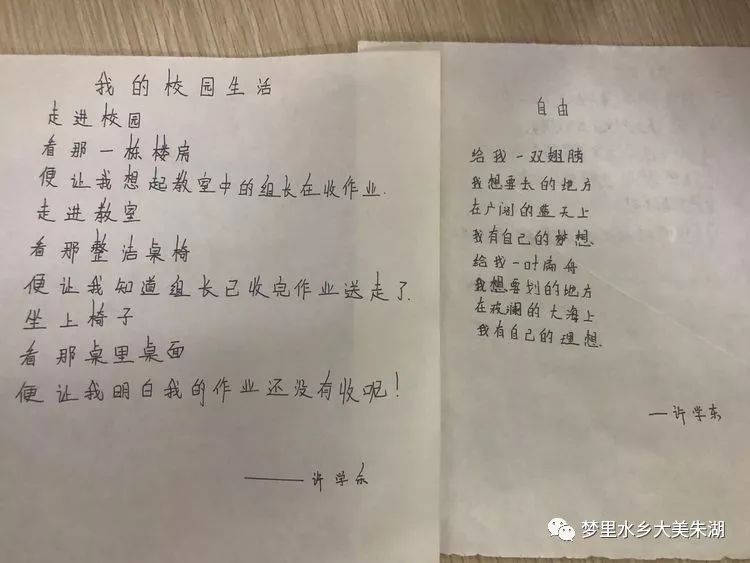 我的校园生活
走进校园
看那一栋楼房
便让我想起教室中的组长在收作业.
走进教室
看那整洁桌椅
便让我知道组长已收完作业送走了.
坐上椅子
看那桌里桌面
便让我明白我的作业还没有收呢!
——许学东
自由
给我一双翅膀
我想要去的地方
在广阔的蓝天上
我有自己的梦想.
给我一叶扁舟
我想要划的地方
在波澜的大海上
我有自己的理想.
—许学东
梦里水乡大美朱湖